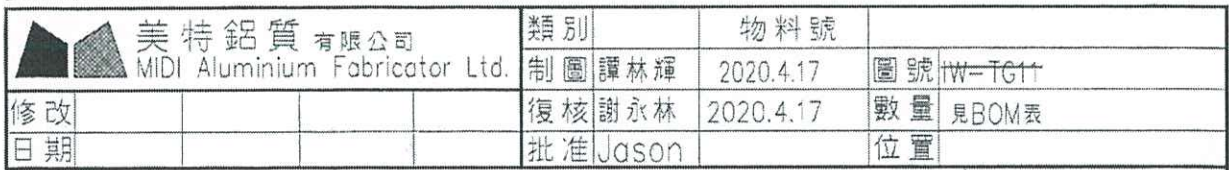 美特鋁質有限公司
MIDI Aluminium Fabricator Ltd.
類別 物料號
制圖 譚林輝 2020.4.17 圖號 IW-TG11
修改 復核 謝永林 2020.4.17 數量 見BOM表
日期 批准 Jason 位置